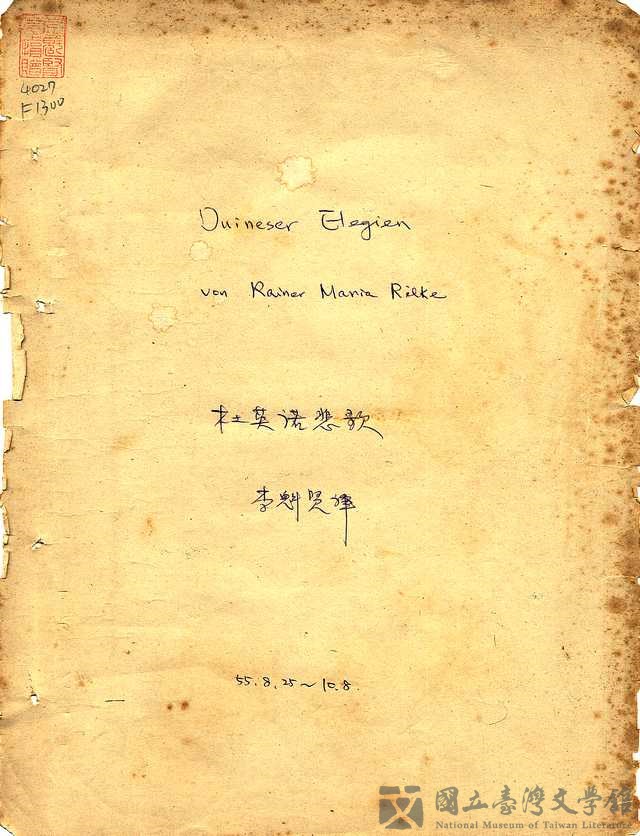 4027
F1300
Duineser Elegien
von Rainer Maria Rilke
杜英諾悲歌
李魁贤譯
55.8.25～10.8.
國立臺灣文學館
National Museum of Taiwan Literature